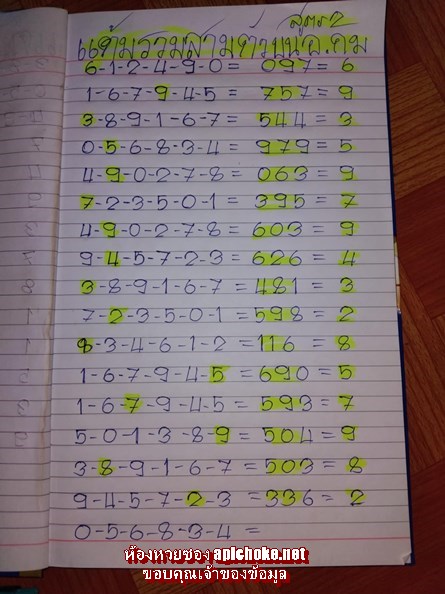 สูตร2
แต้มรวมสามตัวบน อ.กม
6-1-2-4-9-0= 097=6
1-6-7-9-4-5 = 757=9
3-8-9-1-6-7 = 544=3
0-5-6-8-3-4 = 979=5
4-9-0-2-7-8 = 063=9
7-2-3-5-0-1 = 395=7
4-9-0-2-7-8 = 603=9
9-4-5-7-2-3 = 626=4
3-8-9-1-6-7 =481=3
7-2-3-5-0-1 =598=2
8-3-4-6-1-2 =116=8
1-6-7-9-4-5 =690=5
1-6-7-9-4-5 =593=7
5-0-1-3-8-9 =504=9
3-8-9-1-6-7 =503=8
9-4-5-7-2-3 =336=2
0-5-6-8-3-4 =
ห้องหวยซอง apichoke.net
ขอบคุณเจ้าของข้อมูล